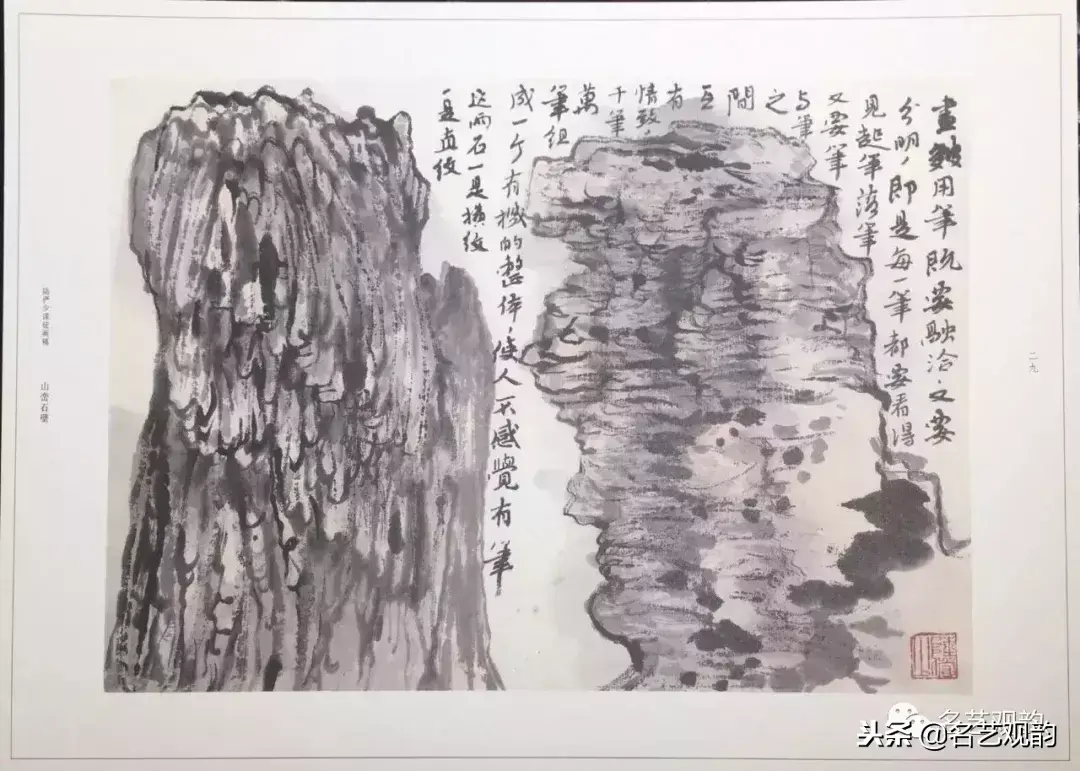 二九
畫皴用筆既要融洽又要
分明，即是每一筆都要看得
見起筆落筆
又要筆
与筆
之
間
互
有
情致，
千筆
萬
筆組
成一个有機的整体，使人不感覺有筆
这两石一是横纹
一是直纹
陆俨少课徒画稿 山峦石壁
名艺观韵
头条 @名艺观韵